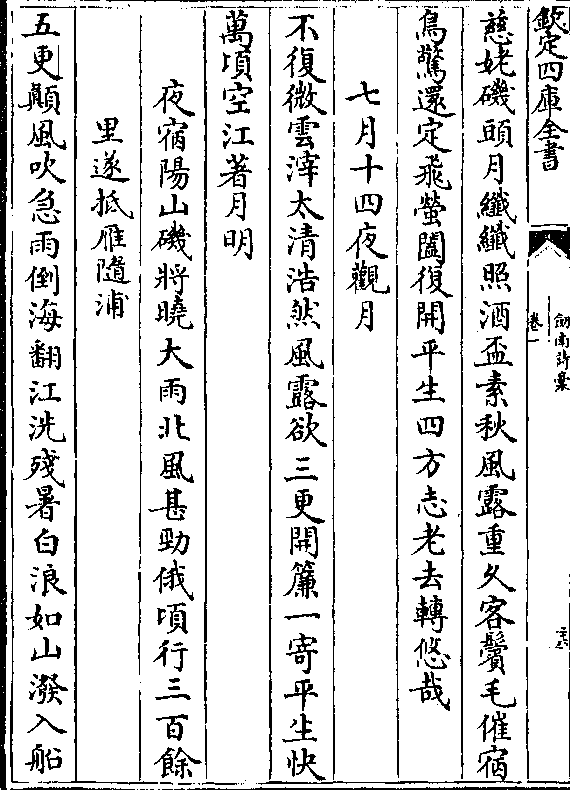 欽定四庫全書
劍南詩稾
卷一
慈姥磯頭月纖纖照酒盃素秋風露重久客鬢毛催宿
鳥驚還定飛螢闔復開平生四方志老去轉悠哉
七月十四夜觀月
不復微雲滓太清浩然風露欲三更開簾一寄平生快
萬頃空江著月明
夜宿陽山磯將曉大雨北風甚勁俄頃行三百餘
里遂抵雁隨浦
五更顛風吹急雨倒海翻江洗殘暑白浪如山潑入船